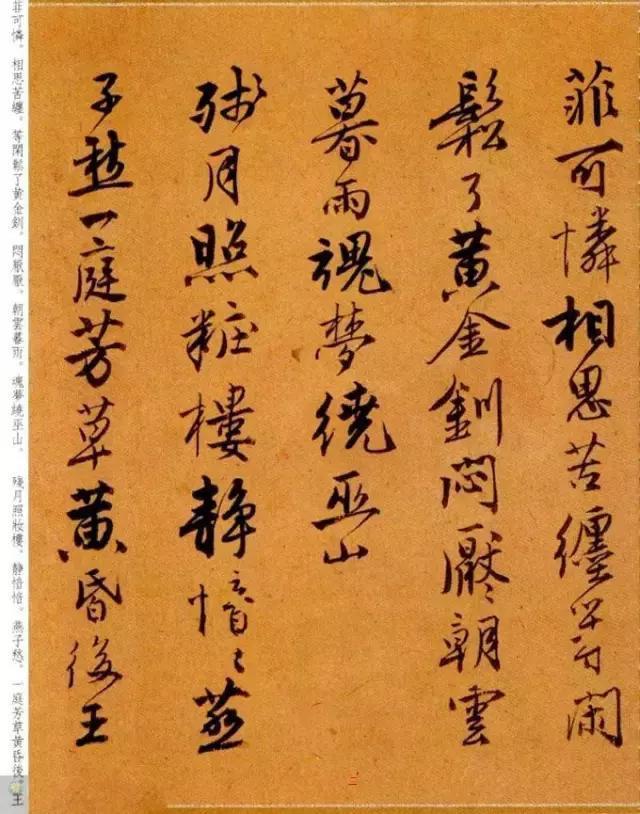 菲可憐相思苦纏等閑
鬆了黃金釧悶厭〻朝雲
暮雨魂夢繞巫山
殘月照粧樓靜愔〻燕
子愁一庭芳草黃昏後王
菲可憐。相思苦纏。等閑鬆了黃金釧。悶厭厭。朝雲暮雨。魂夢繞巫山。 殘月照妝樓。靜愔愔。燕子愁。一庭芳草黃昏後。王
二